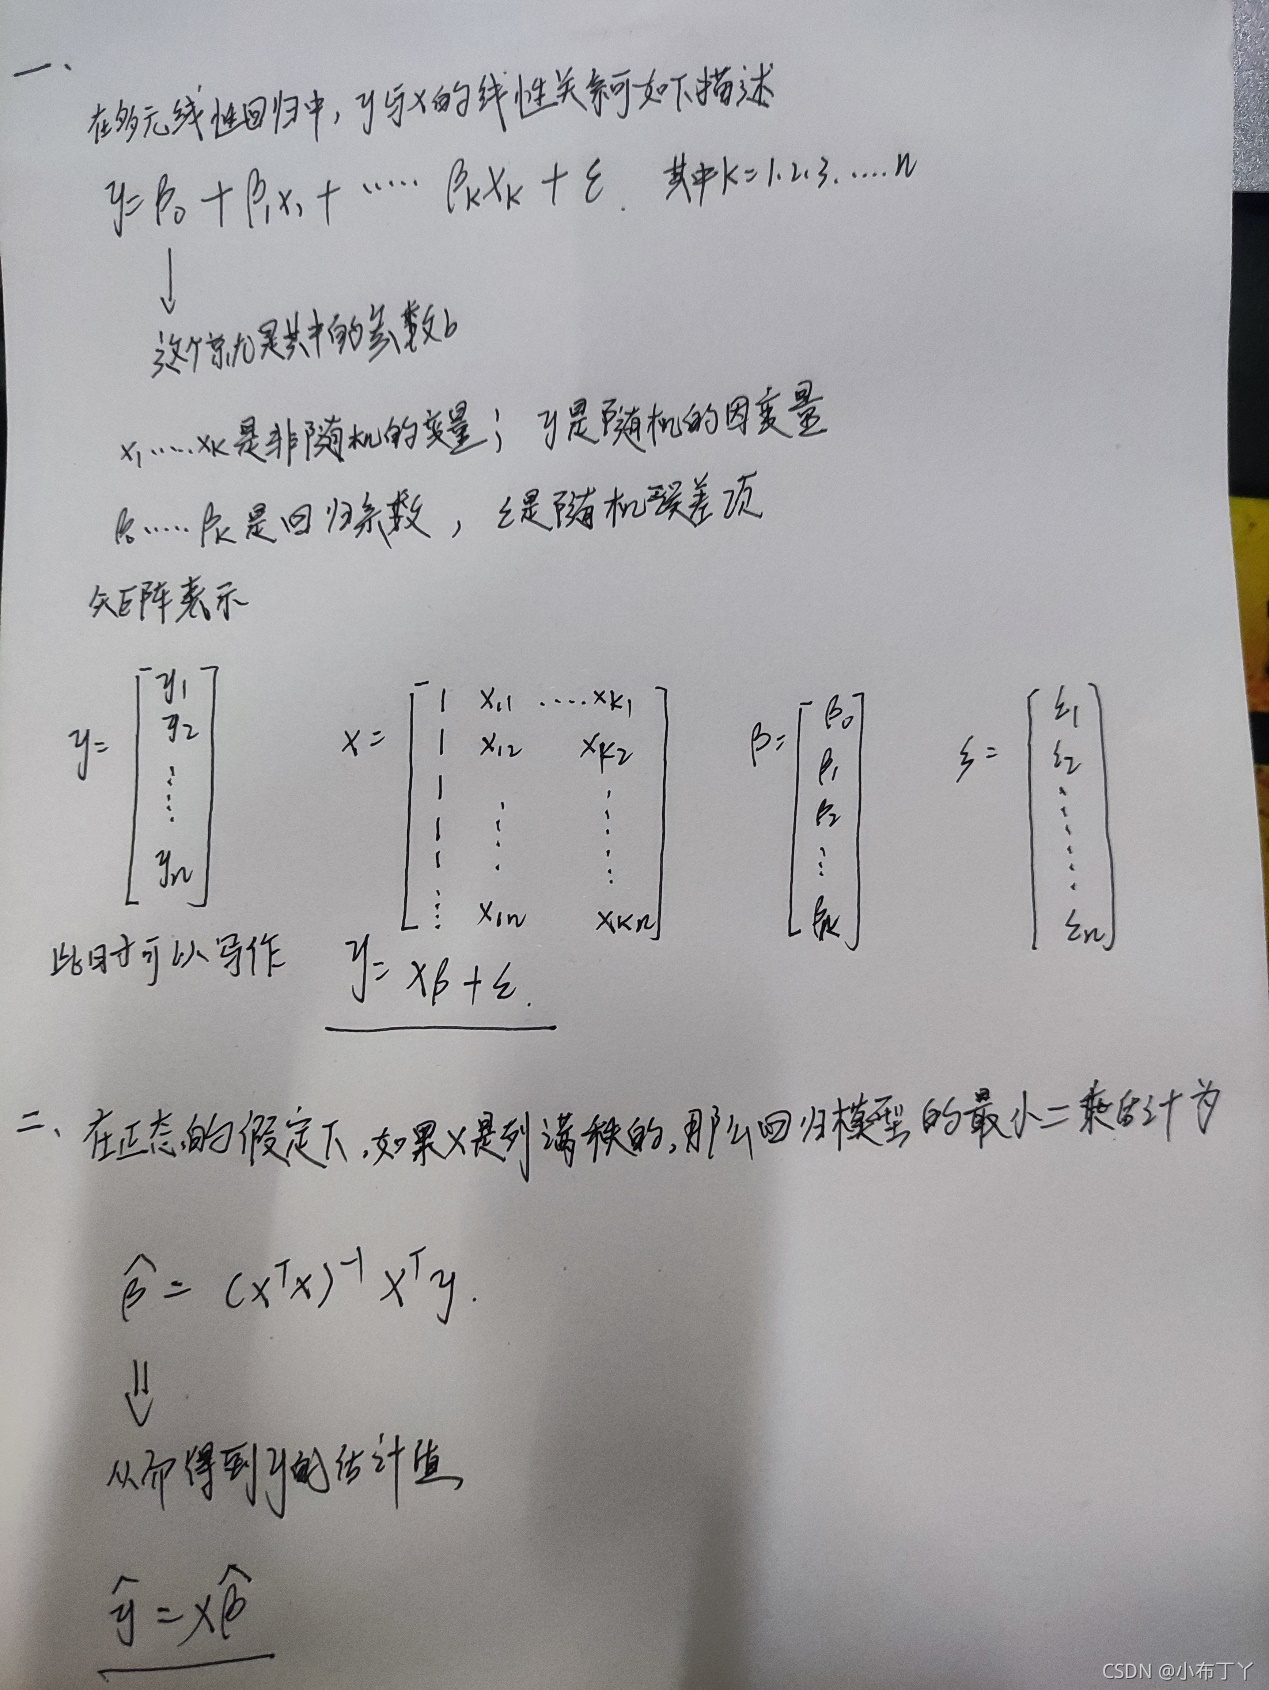 一、
在多元线性回归中，y与x的线性关系可如下描述
y=β₀+β₁x₁+……βₖxₖ+ε. 其中k=1.2.3.……n
↓
这个就是其中的参数b
x₁……xₖ是非随机的变量；y是随机的因变量
β₀……βₖ是回归系数，ε是随机误差项
矩阵表示
y= [y₁ y₂ ⋮ yₙ] x= [1 x₁₁ ……xₖ₁ 1 x₁₂ xₖ₂ 1 1 1 ⋮ x₁ₙ xₖₙ] β= [β₀ β₁ β₂ ⋮ βₖ] ε= [ε₁ ε₂ ⋮ εₙ]
此时可以写作 y=xβ+ε.
二、在正态的假定下，如果x是列满秩的，那么回归模型的最小二乘估计为
β̂=(xᵀx)⁻¹xᵀy.
⇓
从而得到y的估计值
ŷ=xβ̂
CSDN @小布丁丫